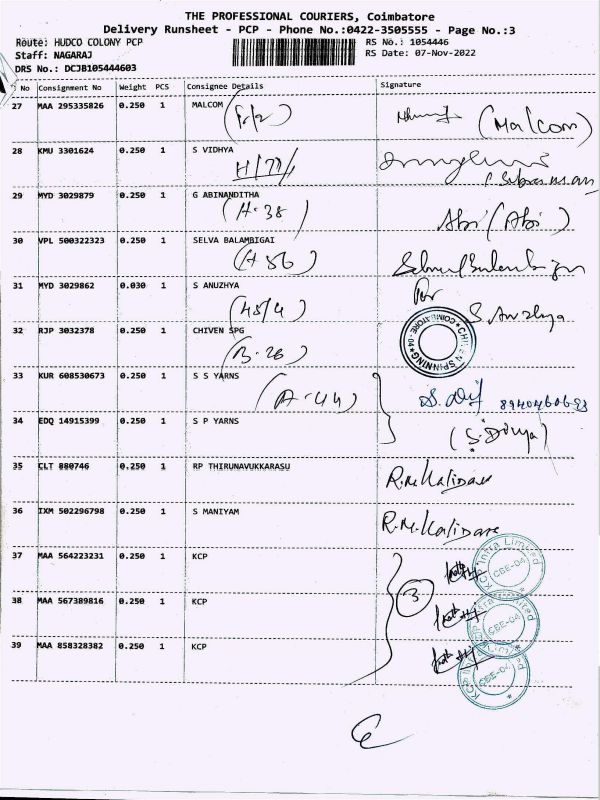 THE PROFESSIONAL COURIERS, Coimbatore
Delivery Runsheet - PCP - Phone No.:0422-3505555 - Page No.:3
Route: HUDCO COLONY PCP
RS No.: 1054446
Staff: NAGARAJ
RS Date: 07-Nov-2022
DRS No.: DCJB105444603
No Consignment No Weight PCS Consignee Details Signature
27 MAA 295335826 0.250 1 MALCOM
(Malcom)
28 KMU 3301624 0.250 1 S VIDHYA
H/77/
29 MYD 3029879 0.250 1 G ABINANDITHA
(H-38) Abi (Abi)
30 VPL 500322323 0.250 1 SELVA BALAMBIGAI
(H 56)
31 MYD 3029862 0.030 1 S ANUZHYA
For
(45/4) S. Anuzhya
32 RJP 3032378 0.250 1 CHIVEN SPG
(B-26) COIMBATORE-04
33 KUR 608530673 0.250 1 S S YARNS
(A-44)
34 EDQ 14915399 0.250 1 S P YARNS
(S. Divya)
35 CLT 880746 0.250 1 RP THIRUNAVUKKARASU
R.M. Kalidass
36 IXM 502296798 0.250 1 S MANIYAM
R.M. Kalidass
37 MAA 564223231 0.250 1 KCP
KCP Infra Limited CBE-04
38 MAA 567389816 0.250 1 KCP
3
KCP Infra Limited CBE-04
39 MAA 858328382 0.250 1 KCP
KCP Infra Limited CBE-04